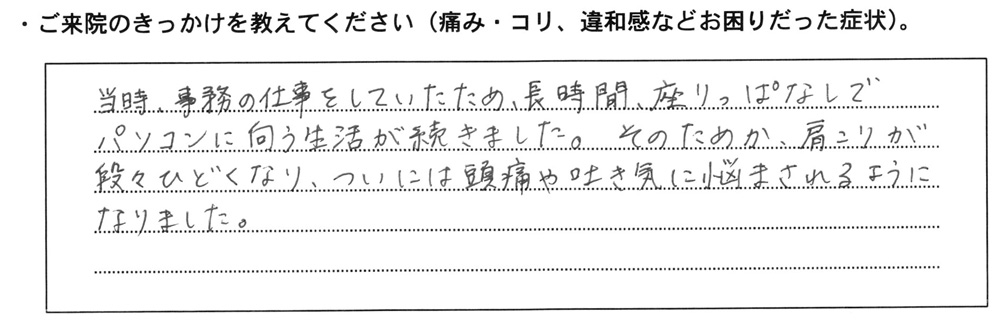 ・ご来院のきっかけを教えてください（痛み・コリ、違和感などお困りだった症状）。
当時、事務の仕事をしていたため、長時間、座りっぱなしで
パソコンに向う生活が続きました。そのためか、肩こりが
段々ひどくなり、ついには頭痛や吐き気に悩まされるように
なりました。